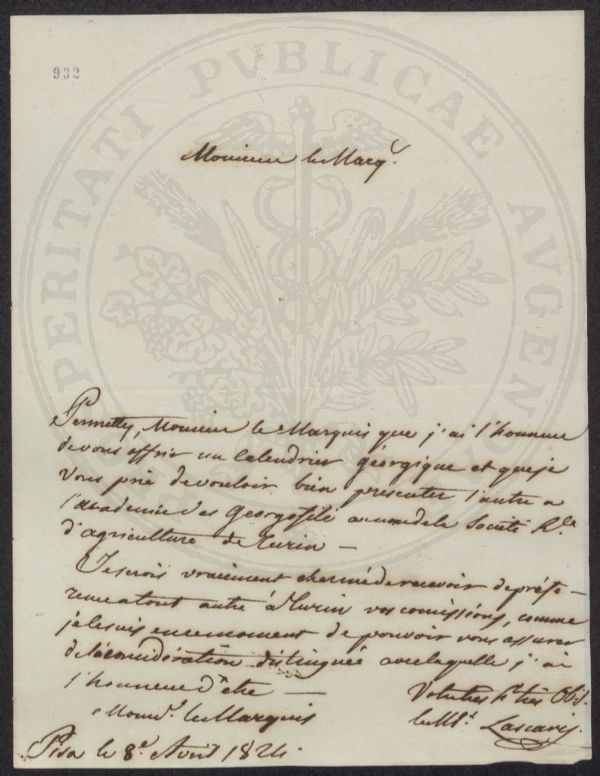 932
PROSPERITATI PVBLICAE AVGENDAE
Monsieur le Marq.
Permettez, Monsieur le Marquis que j'ai l'honneur
de vous offrir un Calendrier géorgique et que je
vous prie de vouloir bien presenter l'autre a
l'academie des Georgofili au nom de la Société Rle
d'agriculture de Turin —
Je serois vraiment charmé de recevoir de préfe-
rence a tout autre à Turin vos comissions, comme
je le suis en ce moment de pouvoir vous assurer
de la considération distinguée avec laquelle j'ai
l'honneur d'être —
Monsr. le Marquis
Votre très Obt.
le Ms. Lascaris
Pisa le 8. Avril 1824.